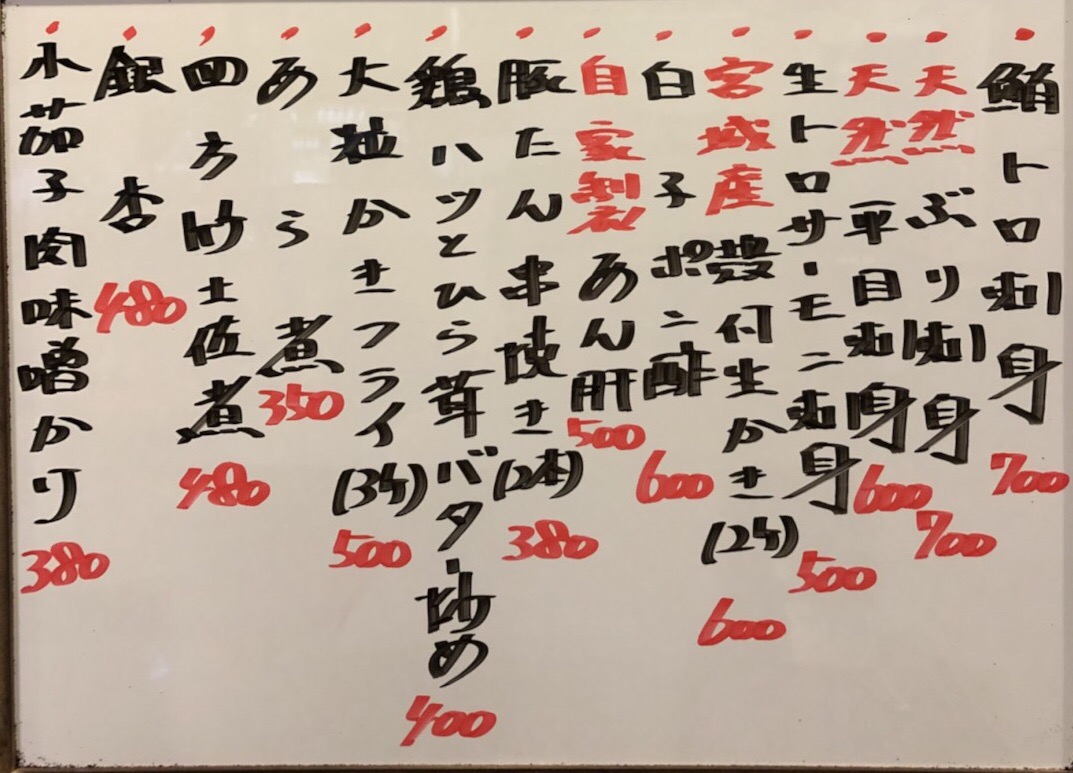 鮪トロ刺身 700
天然ぶり刺身 700
天然平目刺身 600
生トロサーモン刺身 500
宮城産殻付生かき(2ケ) 600
白子ポン酢 600
自家製あん肝 500
豚たん串焼き(2本) 380
鶏ハツとひら茸バター炒め 400
大粒かきフライ(3ケ) 500
あら煮 350
四方竹土佐煮 480
銀杏 480
小茄子肉味噌かけ 380